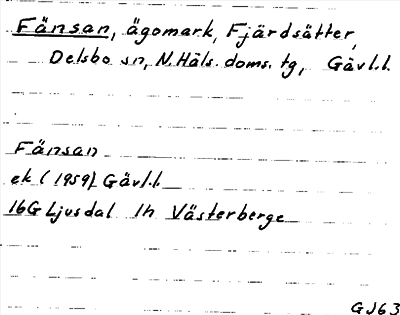 Fänsan, ägomark, Fjärdsätter,
Delsbo sn, N. Häls. doms. tg, Gävl.l.
Fänsan
ek (1959) Gävl.l.
16G Ljusdal 1h Västerberge
GJ63